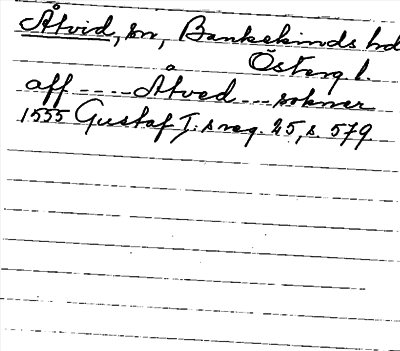 Åtvid, sn, Bankekinds hd
Österg l.
aff ---- Åtved --- soknær
1555 Gustaf I:s reg. 25, s. 579.